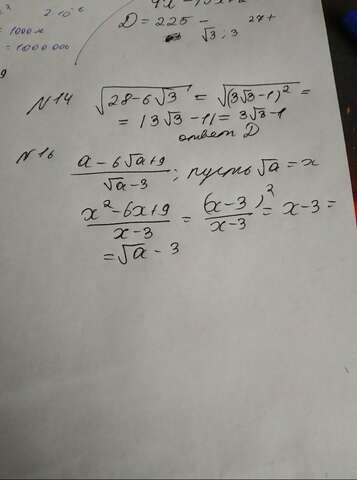 2·10⁻⁶
= 1000 м
= 1000000
D = 225 −
√3 ; 3
N14 √(28-6√3) = √((3√3-1)²) =
= |3√3-1| = 3√3-1
ответ D
N16 (a-6√a+9)/(√a-3) ; пусть √a = x
(x²-6x+9)/(x-3) = (x-3)²/(x-3) = x-3 =
= √a - 3